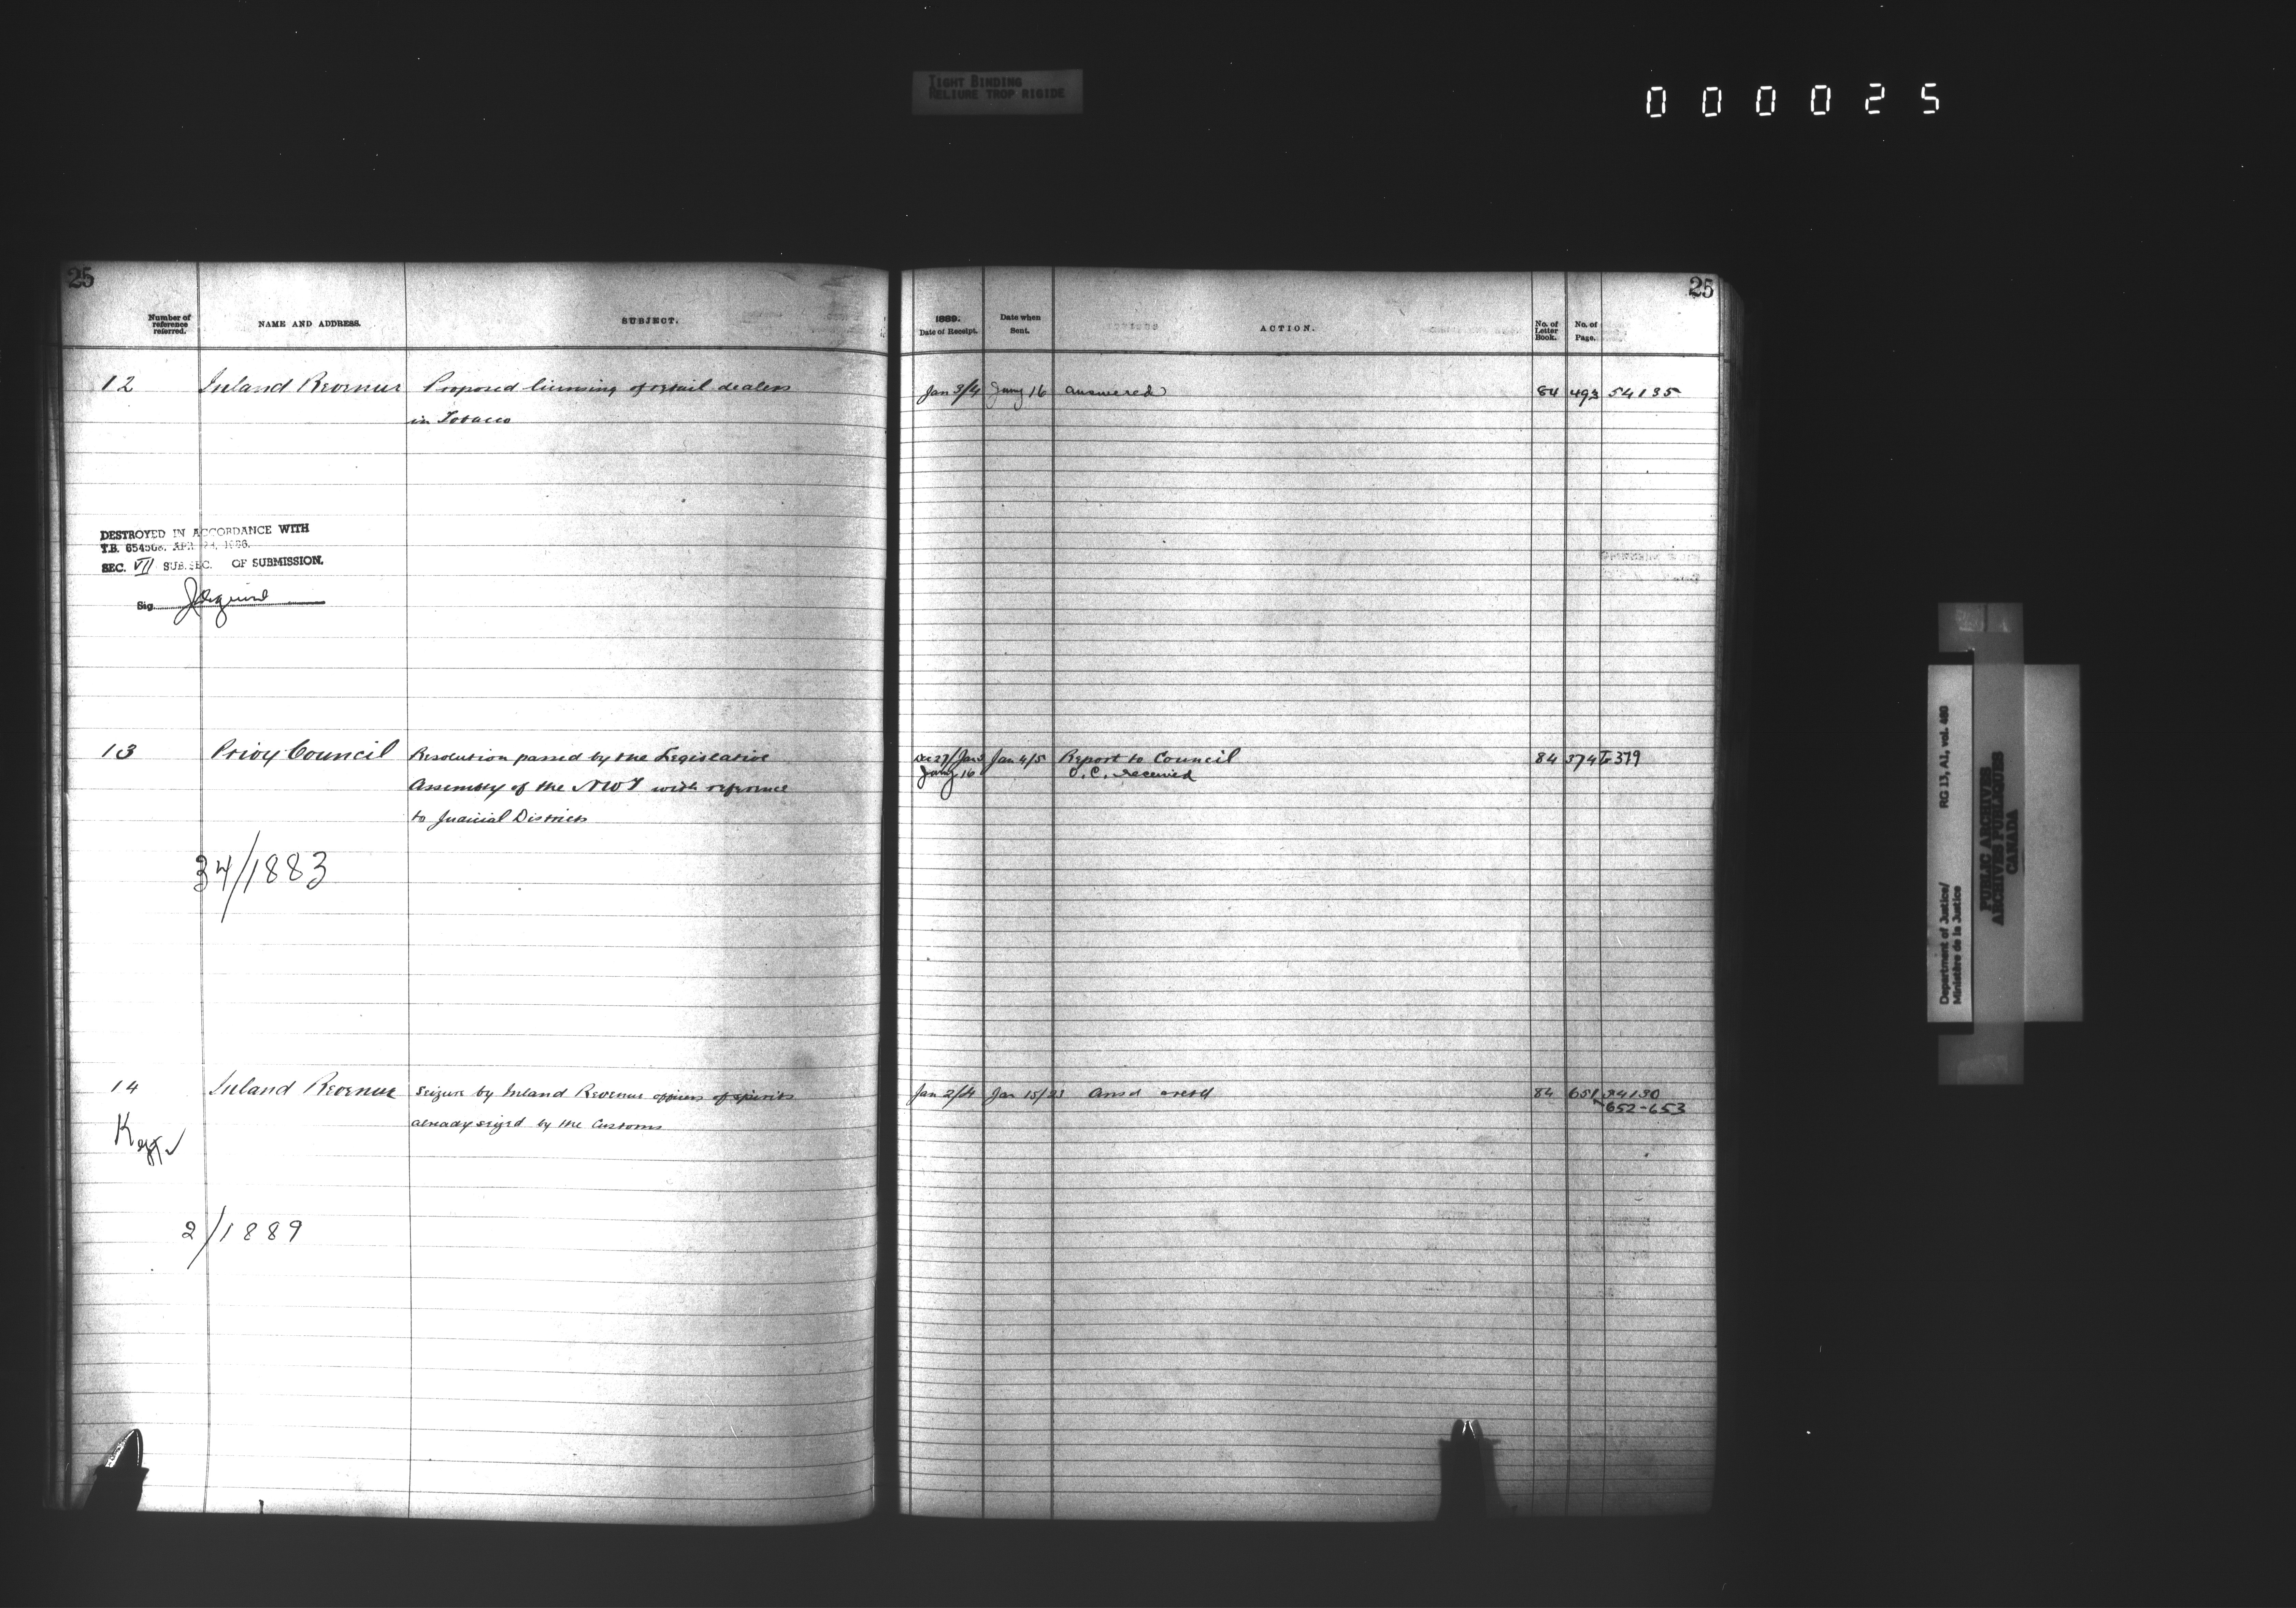 TIGHT BINDING
RELIURE TROP RIGIDE
000025
25
Number of reference referred.
NAME AND ADDRESS.
SUBJECT.
12 Inland Revenue Proposed licensing of retail dealers
in Tobacco
DESTROYED IN ACCORDANCE WITH
T.B. 654506. APR
SEC. VII SUB.SEC. OF SUBMISSION.
Sig.
13 Privy Council Resolution passed by the Legislative
Assembly of the NWT with reference
to Judicial Districts
34/1883
14 Inland Revenue Seizure by Inland Revenue officers of spirits
already seized by the Customs
2/1889
25
1889.
Date of Receipt.
Date when Sent.
ACTION.
No. of Letter Book.
No. of Page.
Jan 3/4 Jany 16 answered 84 493 54135
Dec 27/Jan 3 Jan 4/5 Report to Council 84 374 To 379
Jany 16 O.C. received
Jan 2/4 Jan 15/23 Ansd 84 651
652-653
Department of Justice/ RG 13, A1, vol. 480
Ministère de la Justice
PUBLIC ARCHIVES
ARCHIVES PUBLIQUES
CANADA